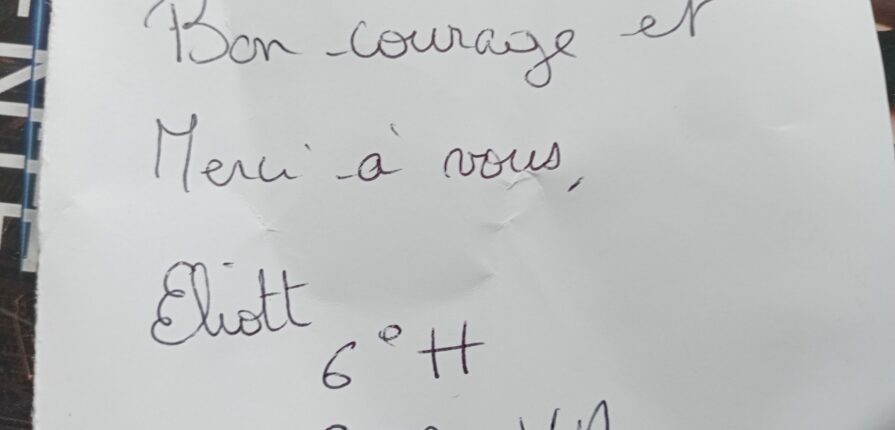 Bon courage et
Merci à vous,
Eliott
6° H